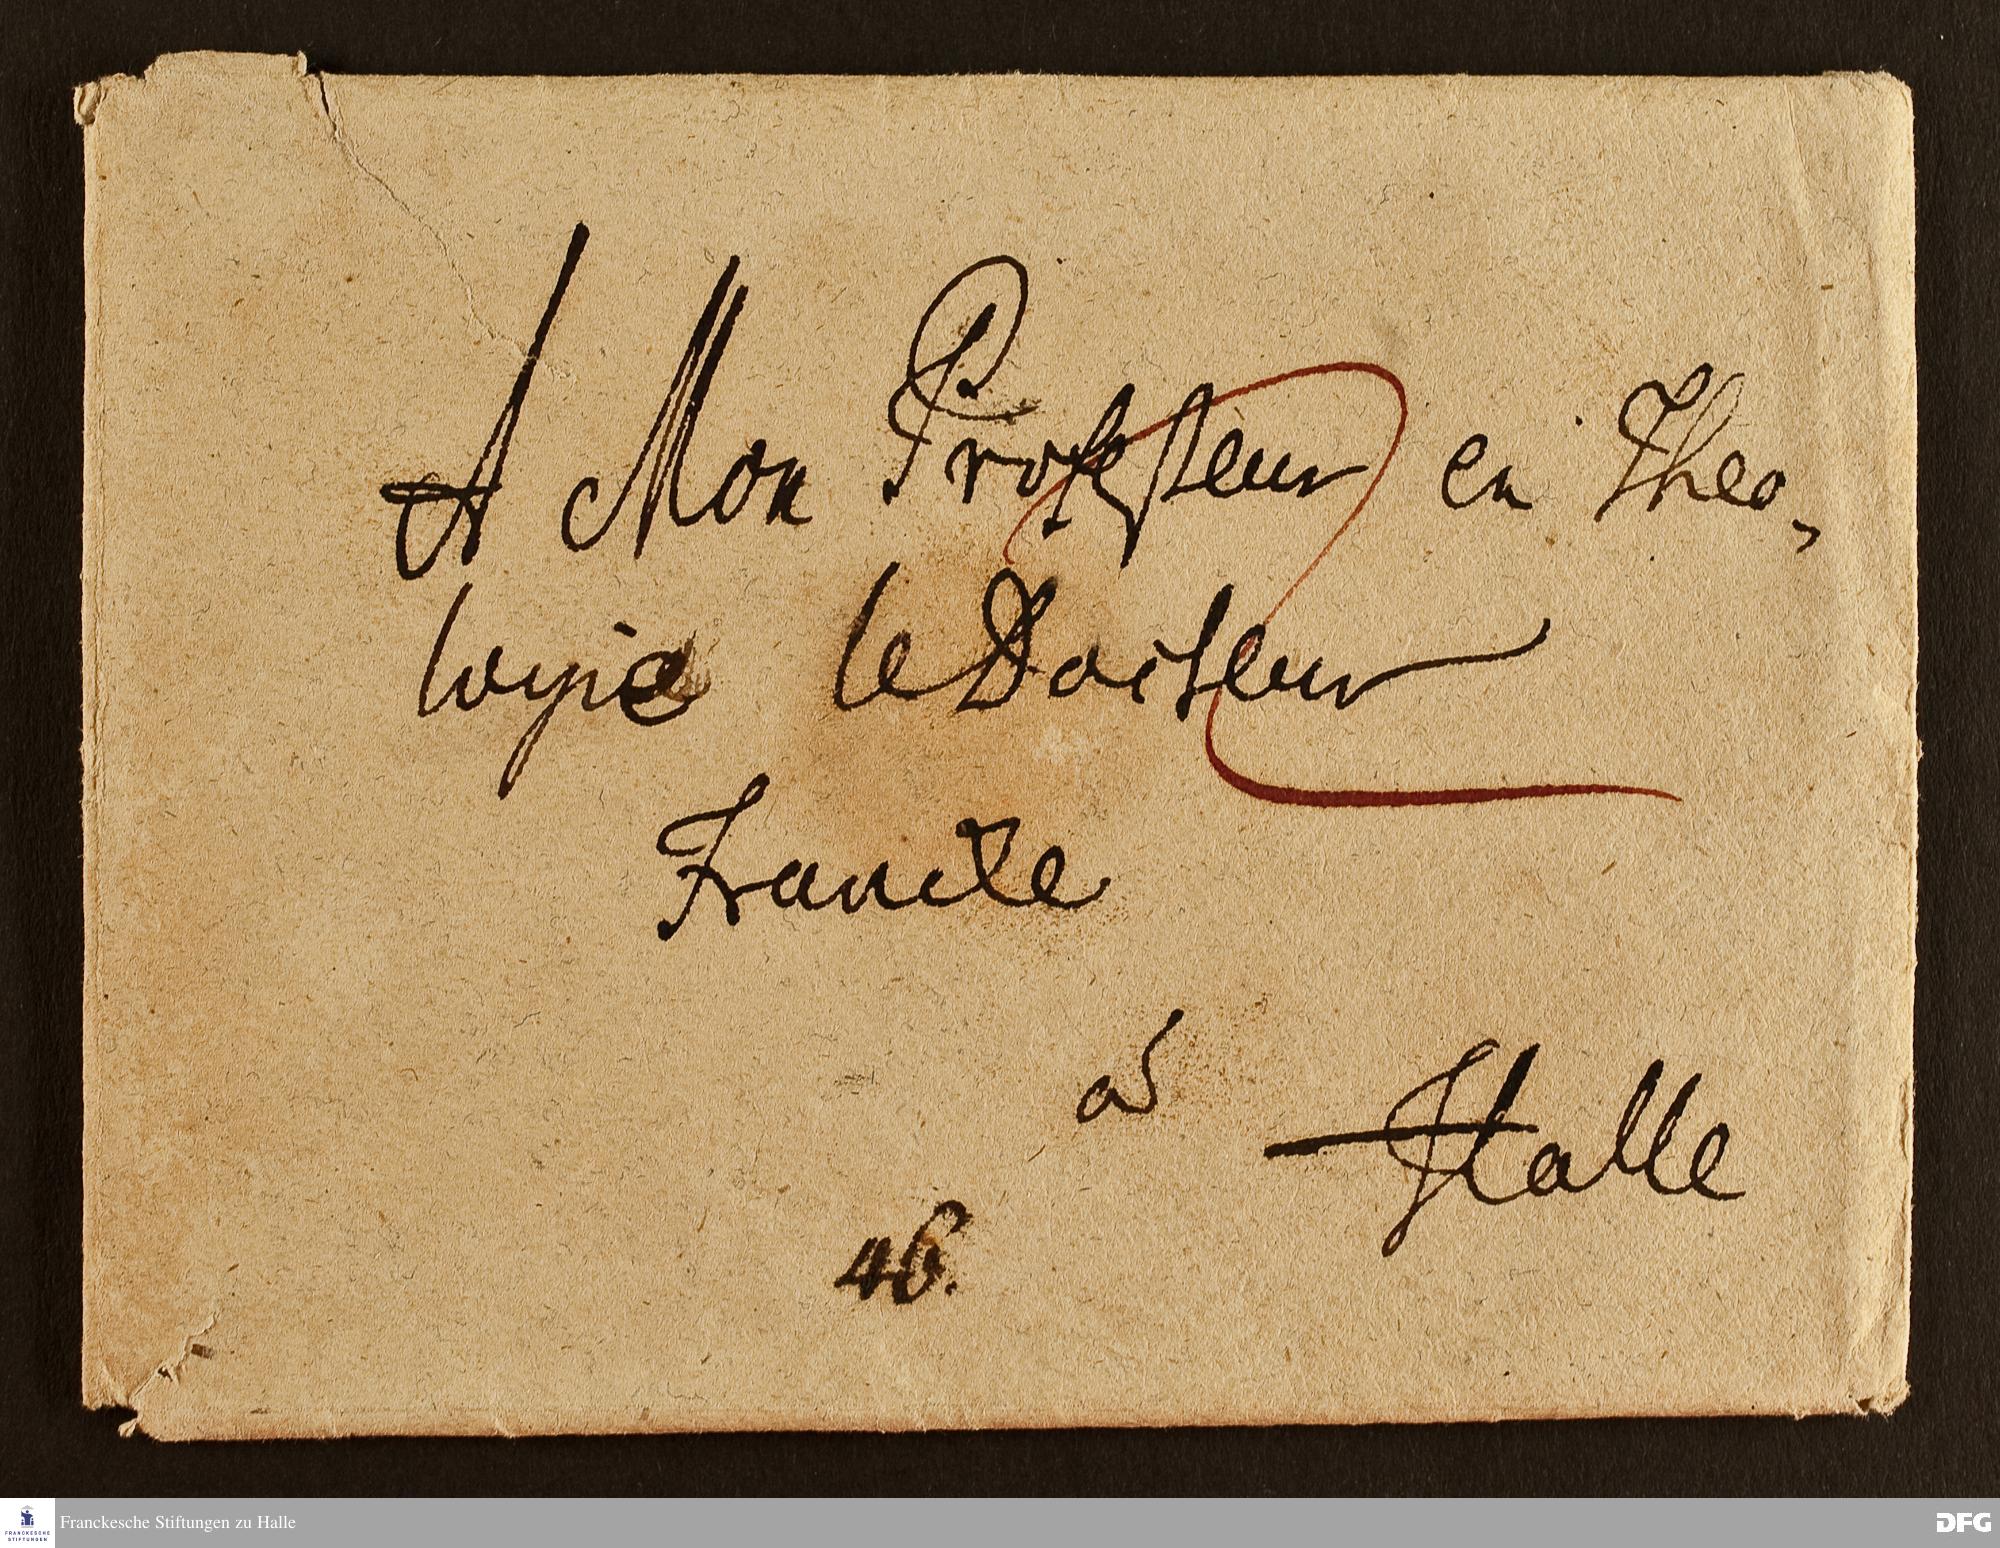 A Mon Professeur en Theo,
logie le Docteur
Francke
à
Halle
46.
FRANCKESCHE
STIFTUNGEN
Franckesche Stiftungen zu Halle
DFG